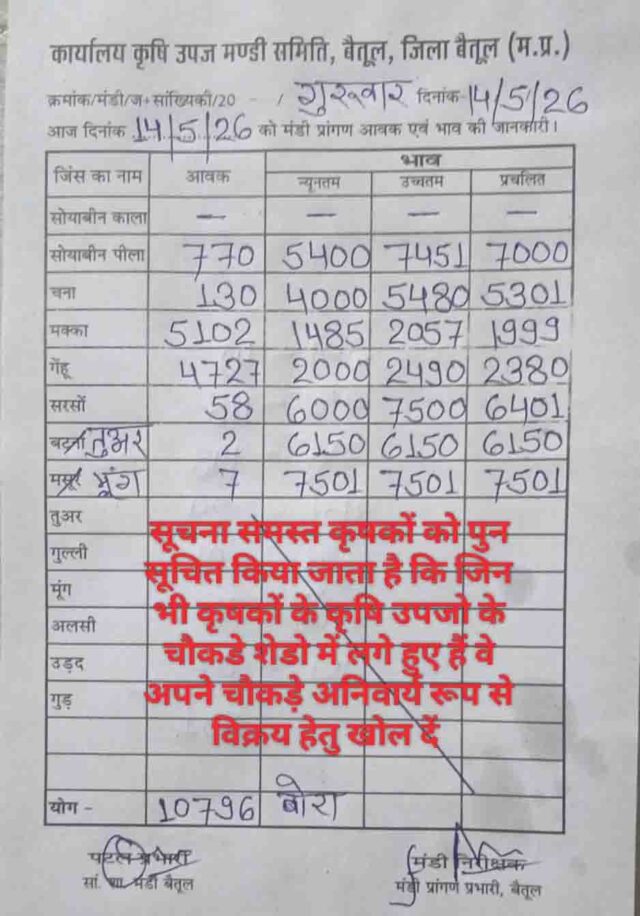 कार्यालय कृषि उपज मण्डी समिति, बैतूल, जिला बैतूल (म.प्र.)
क्रमांक/मंडी/ज+सांख्यिकी/20 - / गुरूवार दिनांक-14/5/26
आज दिनांक 14/5/26 को मंडी प्रांगण आवक एवं भाव की जानकारी।
भाव
जिंस का नाम आवक न्यूनतम उच्चतम प्रचलित
सोयाबीन काला — — — —
सोयाबीन पीला 770 5400 7451 7000
चना 130 4000 5480 5301
मक्का 5102 1485 2057 1999
गेंहू 4727 2000 2490 2380
सरसों 58 6000 7500 6401
तुअर 2 6150 6150 6150
मसूर मूंग 7 7501 7501 7501
तुअर
गुल्ली
मूंग
अलसी
उड़द
गुड़
सूचना समस्त कृषकों को पुन
सूचित किया जाता है कि जिन
भी कृषकों के कृषि उपजो के
चौकडे शेडो में लगे हुए हैं वे
अपने चौकड़े अनिवार्य रूप से
विक्रय हेतु खोल दें
योग - 10796 बोरा
प्रभारी मंडी निरीक्षक
सां. शा. मंडी बैतूल मंडी प्रांगण प्रभारी, बैतूल